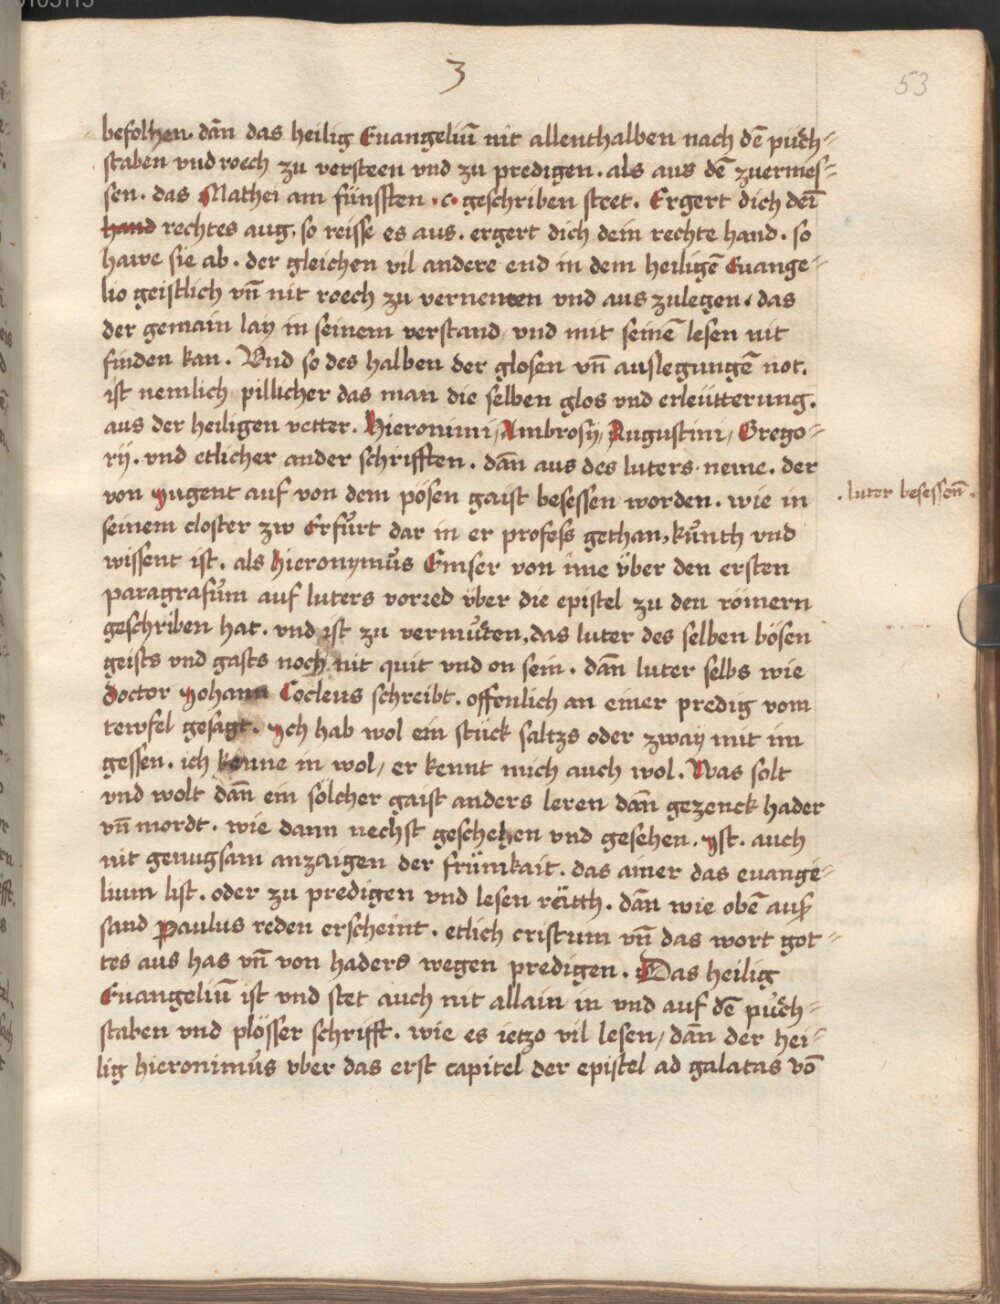 3
53
befolhen. dan̄ das heilig Euangeliū nit allenthalben nach dē půch-
staben vnd roech zu versteen vnd zu predigen. als aus dē zuermes-
sen. das Mathei am fünfften .c. geschriben steet. Ergert dich deī
hand rechtes aug, so reisse es aus. ergert dich dein rechte hand. so
hawe sie ab. der gleichen vil andere end in dem heiligē Euange-
lio geistlich vn̄ nit roech zu vernemen vnd aus zulegen. das
der gemain lay in seinem verstand vnd mit seinē lesen nit
finden kan. Vnd so des halben der glosen vn̄ auslegungē not.
ist nemlich pillicher das man die selben glos vnd erleütterung.
aus der heiligen vetter. Hieronimi, Ambrosij, Augustini, Grego-
rij. vnd etlicher ander schrifften. dan̄ aus des luters neme. der
von Jugent auf von dem pösen gaist besessen worden. wie in
. luter besessen̄.
seinem closter zw Erfůrt dar in er profess gethan, kůnth vnd
wissent ist. als Hieronymůs Emser von ime über den ersten
paragrafům auf luters vorred über die epistel zu den römern
geschriben hat. vnd ist zu vermůten, das luter des selben bösen
geists vnd gasts noch nit quit vnd on sein. dan̄ luter selbs wie
doctor Johann Cocleus schreibt. offenlich an einer predig vom
tewfel gesagt. Jch hab wol ein stück saltzs oder zway mit im
gessen. ich kenne in wol, er kennt mich auch wol. Was solt
vnd wolt dan̄ ein sölcher gaist anders leren dan̄ gezenck hader
vn̄ mordt. wie dann nechst geschehen vnd gesehen. Jst. auch
nit genugsam anzaigen der frümkait. das ainer das euange-
lium list. oder zu predigen vnd lesen rätth. dan̄ wie obē aus
sand Paulus reden erscheint. etlich cristum vn̄ das wort got-
tes aus has vn̄ von haders wegen predigen. Das heilig
Euangeliū ist vnd stet auch nit allain in vnd auf dē půch-
staben vnd plösser schrifft. wie es ietzo vil lesen, dan̄ der hei-
lig hieronimůs vber das erst capitel der epistel ad galatas vō